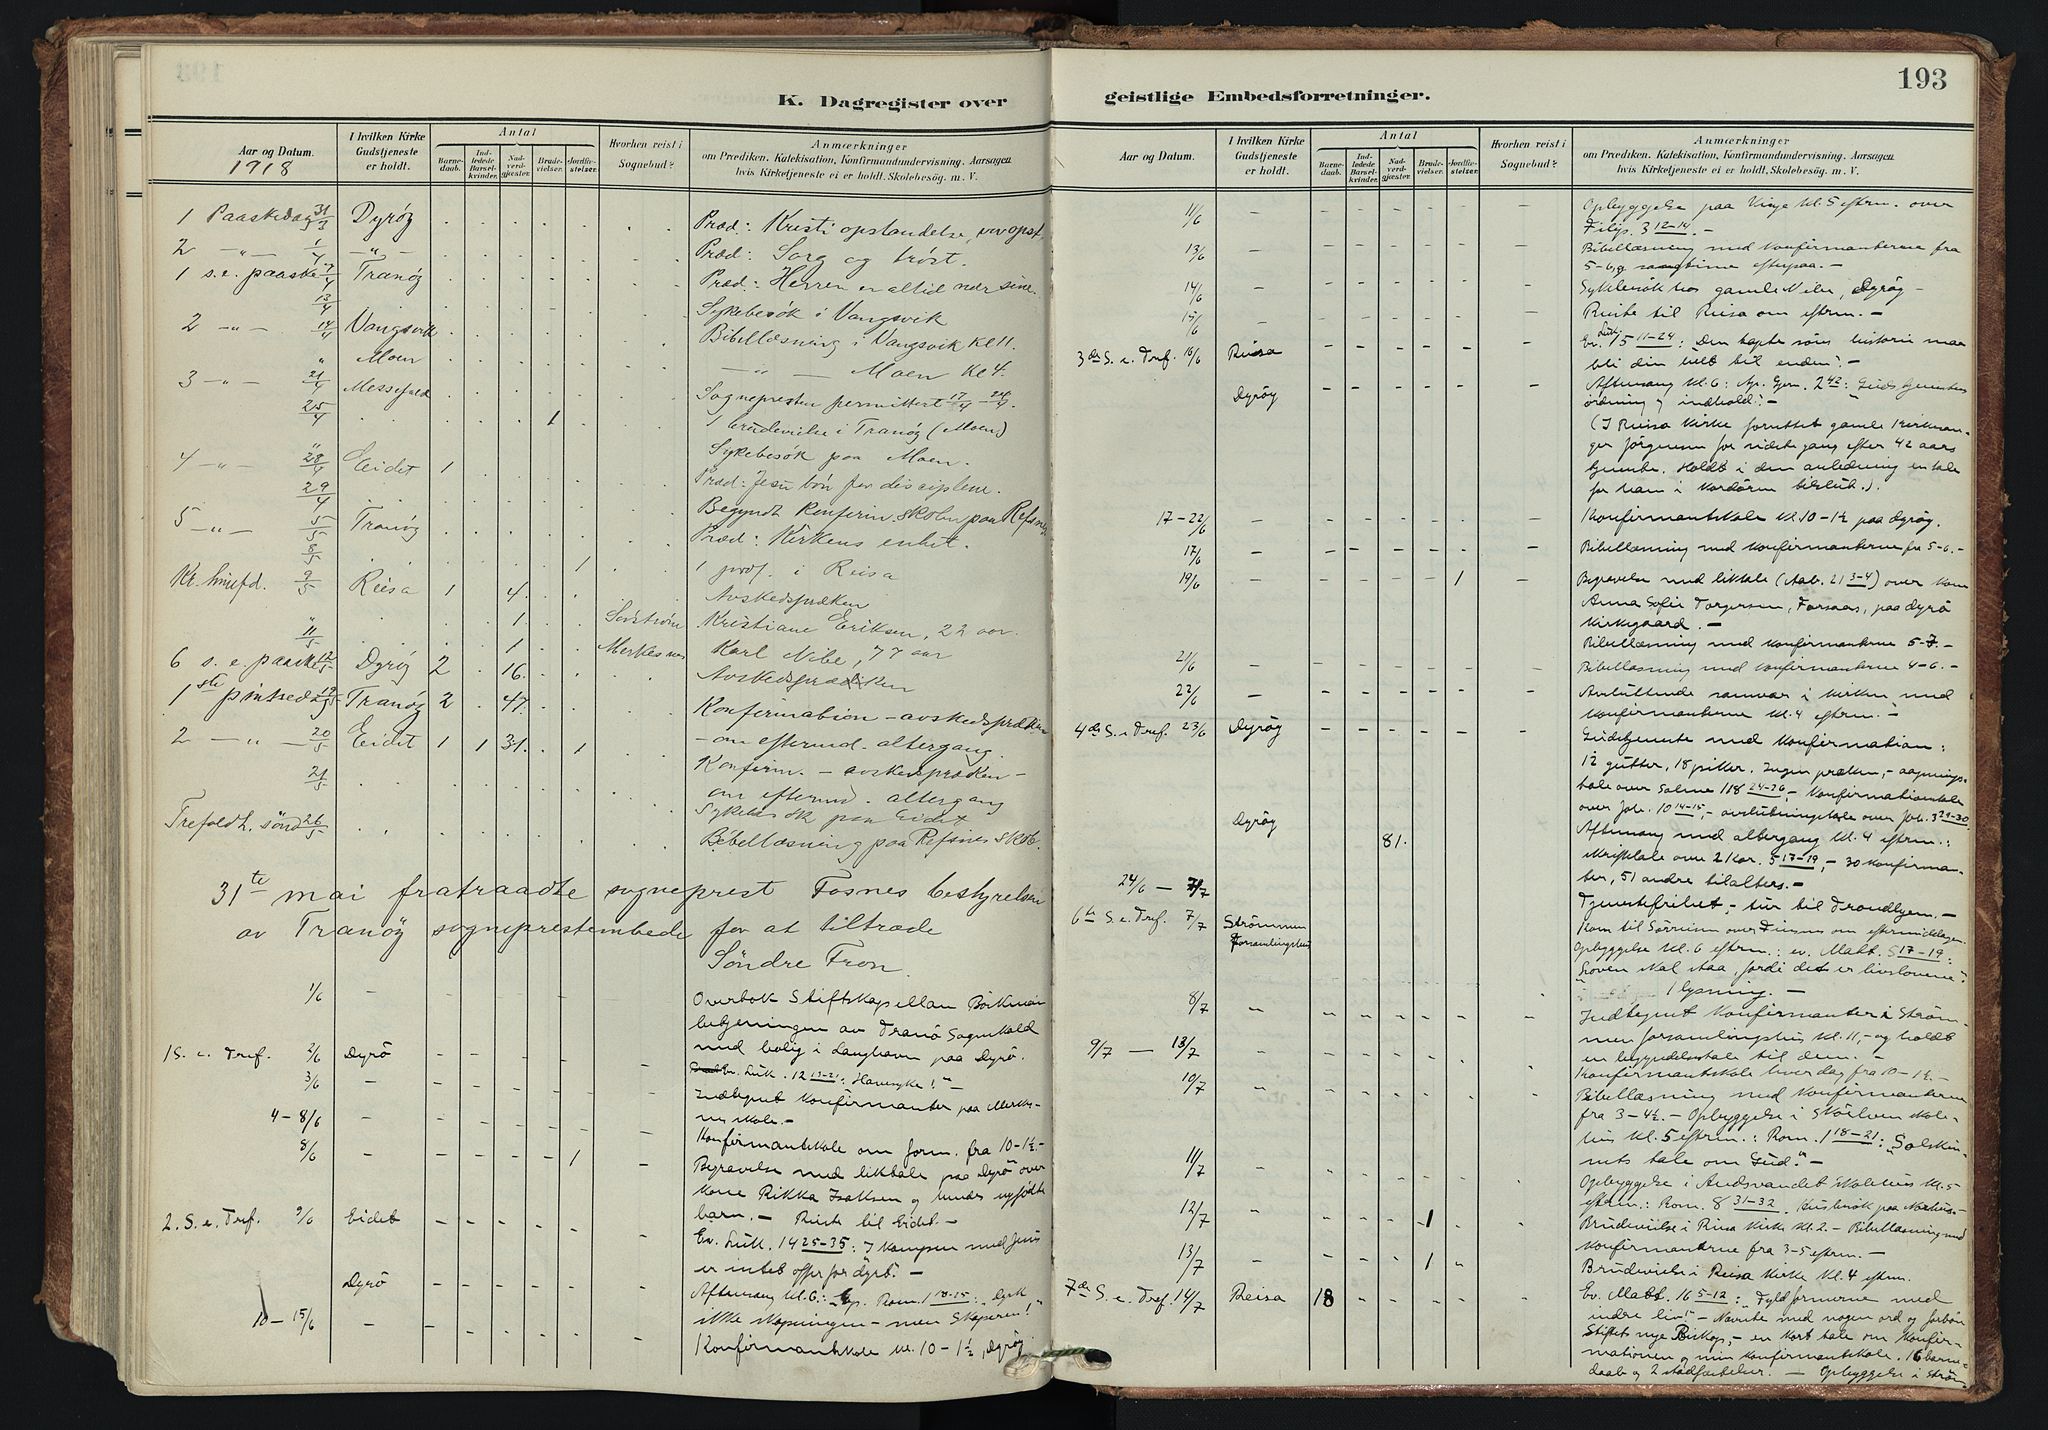 193
K. Dagregister over
geistlige Embedsforretninger.
Aar og Datum.
1918
I hvilken Kirke Gudstjeneste er holdt.
Antal
Barnedaab.
Indledede Barselkvinder.
Nadverdgjæster.
Brudevielser.
Jordfæstelser.
Hvorhen reist i Sognebud?
Anmærkninger
om Prædiken. Katekisation, Konfirmandundervisning. Aarsagen
hvis Kirketjeneste ei er holdt. Skolebesög. m. V.
1 Paaskedag 31/3 Dyrøy Præd: Kristi opstandelse, vor opst.
2 -"- 1/4 -"- Præd: Sorg og trøst.
1 s.e. paaske 7/4 Tranøy Præd: Herren er altid nær sine.
13/4 Sykebesøk i Vangsvik
2 -"- 14/4 Vangsvik Bibellæsning i Vangsvik kl 11.
" Moen -"- Moen kl 4.
3 -"- 21/4 Messefald Sognepresten permittert 17/4 24/4.
25/4 1 1 brudevielse i Tranøy (Moen)
Sykebesøk paa Moen.
4 -"- 28/4 Eidet 1 Præd: Jesu bøn for disciplene.
29/4 Begyndt konfirm.skolen paa Refsnes
5 -"- 5/5 Tranøy Præd: Kirkens enhet.
8/5 1 1 i Reisa
Kr. himfd. 9/5 Reisa 1 4 Avskedspræken
" 1 Sørstrøm Kristiane Eriksen, 22 aar.
11/5 1 Merkesnes Karl Nibe, 77 aar
6 s. e. paaske 12/5 Dyrøy 2 16 Avskedspræken
1ste pintsedag 19/5 Tranøy 2 47 Konfirmation - avskedspræken
- om efterm. altergang
2 -"- 20/5 Eidet 1 1 31 1 Konfirm. - avskedspræken -
om efterm. altergang
21/5 Sykebesøk paa Eidet
Trefoldh. sønd 26/5 Bibellæsning paa Refsnes skole.
31te mai fratraadte sogneprest Fosnes bestyrelsen
av Tranöy sogneprestembede for at tiltræde
Söndre Fron.
1/6 Overtok Stiftskapellan Börkman
betjeningen av Tranö Sognekald
med bolig i Langhavn paa Dyrö.
1 S. e. Tref. 2/6 Dyrö Ev. Luk. 12 13-21: Havesyke!" -
3/6 Indtegnet konfirmanter paa Merkesnes
skole. -
4-8/6 Konfirmantskole om form. fra 10-1½ -
8/6 1 Begravelse med liktale paa Dyrö over
kone Rikka Isaksen og hendes nyfödte
barn. - Reiste til Eidet. -
2. S. e. Tref. 9/6 Eidet Ev. Luk. 14 25-35: I kampen med Jesus
er intet offer for dyrt. -
Dyrö Aftensang kl. 6: Ep. Rom. 1 18-25: Dyrk
ikke skapningen - men Skaperen!"
10-15/6 Konfirmantskole kl. 10-1½, Dyröy
Aar og Datum.
I hvilken Kirke Gudstjeneste er holdt.
Antal
Barnedaab.
Indledede Barselkvinder.
Nadverdgjæster.
Brudevielser.
Jordfæstelser.
Hvorhen reist i Sognebud?
Anmærkninger
om Prædiken. Katekisation, Konfirmandundervisning. Aarsagen
hvis Kirketjeneste ei er holdt. Skolebesög. m. V.
11/6 Opbyggelse paa Vinje kl. 5 efterm. over
Filip. 3 12-14. -
13/6 Bibellæsning med konfirmanterne fra
5-6, og sangtime efterpaa. -
14/6 Sykebesök hos gamle Nibe, Dyröy -
15/6 Reiste til Reisa om efterm. -
3die S. e. Tref. 16/6 Reisa Ev. Luk. 15 11-24: Den tapte söns historie maa
bli din helt til enden!" -
Dyröy Aftensang kl. 6: Ap. Gjern. 2 42: Gudstjenestens
ordning og indhold." -
(I Reisa kirke forrettet gamle kirkesanger
Jörgensen for sidste gang efter 42 aars
tjeneste. Holdt i den anledning en tale
for ham i kordören tilslut.).
17-22/6 Konfirmantskole kl. 10-1½ paa Dyröy.
17/6 Bibellæsning med konfirmanterne fra 5-6. -
19/6 1 Begravelse med liktale (Aab. 21 3-4) over kone
Anna Sofie Torgersen, Forsaas, paa Dyrö
kirkegaard. -
Bibellæsning med konfirmanterne 5-7. -
21/6 Bibellæsning med konfirmanterne 4-6. -
22/6 Avsluttende samvær i kirken med
konfirmanterne kl. 4 efterm. -
4de S. e. Tref. 23/6 Dyröy Gudstjeneste med konfirmation:
12 gutter, 18 piker. Ingen præken, - aapningstale
over Salme 118 24-26, - konfirmationstale
over Joh. 10 14-15, - avslutningstale over Joh. 3 29-30.
Dyröy 81. Aftensang med altergang kl. 4 efterm.:
skriftetale over 2 Kor. 5 17-19, - 30 konfirmanter,
51 andre tilalters. -
24/6 - 7/7 Tjenestefrihet, - tur til Trondhjem. -
6te S. e. Tref. 7/7 Strömmen Forsamlingshus Kom til Sörreisa over Finsnes om eftermiddagen.
Opbyggelse kl. 6 efterm.: ev. Matt. 5 17-19:
"Loven skal staa, fordi det er livslovene."
1 lysning. -
8/7 Indtegnet konfirmanter i Strömmen
forsamlingshus kl. 11, - og holdt
en begyndelsestale til dem. -
9/7 - 13/7 Konfirmantskole hver dag fra 10-1½. -
10/7 Bibellæsning med konfirmanterne
fra 3-4½. - Opbyggelse i Sköelven skolehus
kl. 5 efterm.: Rom. 1 18-21: "Solskinnets
tale om Gud." -
11/7 Opbyggelse i Andsvandet skolehus kl. 5
efterm.: Rom. 8 31-32. Husbesök paa
12/7 1 Brudevielse i Reisa kirke kl. 2. - Bibellæsning med
konfirmanterne fra 3-5 efterm. -
13/7 1 Brudevielse i Reisa kirke kl. 4 efterm.
7de S. e. Tref. 14/7 Reisa 18 Ev. Matt. 16 5-12: "Fyld formerne med
indre liv!" - Nævnte med nogen ord og forbön
Stiftets nye Biskop, - en kort tale om konfirmationen
og min konfirmantskole. 16 barnedaab
og 2 stadfæstelser. - Opbyggelse i Ström-